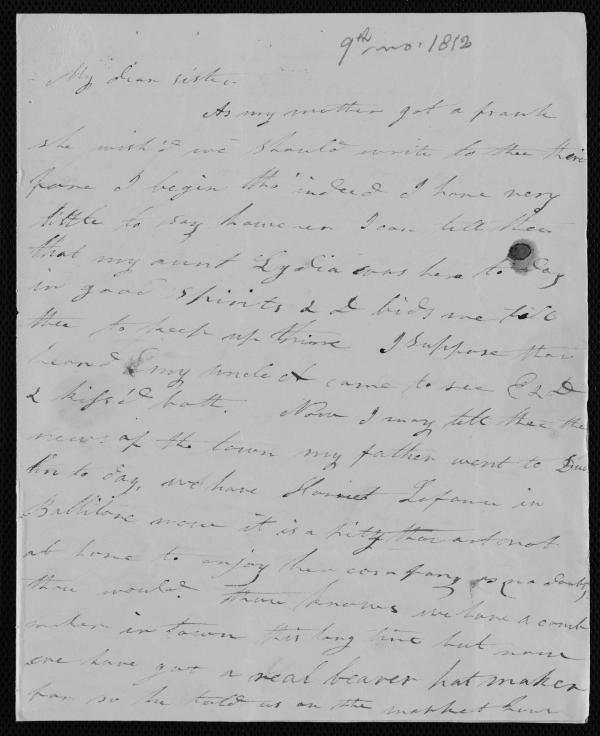 9th mo. 1812
My dear sister
As my mother got a frank
she wish'd we should write to thee there
fore I begin tho' indeed I have very
little to say however I can tell thee
that my aunt Lydia was here to day
in good spirits & D bids me tell
thee to keep up thine I suppose thou
heard my uncle came to see E & D
& kiss'd both. Now I may tell thee the
news of the town my father went to Dub
lin to day, we have Harriet Lefanu in
Ballitore now it is a pity thou art not
at home to enjoy her company as no doubt
thou would. Thou knows we have a comb
maker in town this long time but now
we have got a real beaver hat maker
for so he told us on the market house